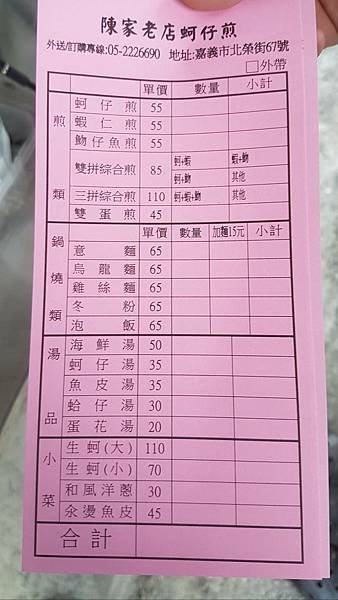 陳家老店蚵仔煎
外送/訂購專線:05-2226690 地址:嘉義市北榮街67號
□外帶
單價 數量 小計
煎類
蚵仔煎 55
蝦仁煎 55
魩仔魚煎 55
雙拼綜合煎 85 蚵+蝦 蝦+魩
蚵+魩 其他
三拼綜合煎 110 蚵+蝦+魩 其他
雙蛋煎 45
鍋燒類
單價 數量 加麵15元 小計
意麵 65
烏龍麵 65
雞絲麵 65
冬粉 65
泡飯 65
湯品
海鮮湯 50
蚵仔湯 35
魚皮湯 35
蛤仔湯 30
蛋花湯 20
小菜
生蚵(大) 110
生蚵(小) 70
和風洋蔥 30
汆燙魚皮 45
合計